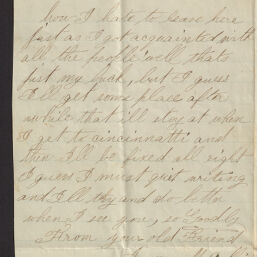 how I hate to leave here
just as I got acquainted with
all the people well thats
just my luck, but I guess
I'll get some place after
while that ill stay at when
I get to cincinnatti and
then I'll be fixed all right
I guess I must quit writing
and I'll try and do better
when I see you, so Goodby
From your old Friend